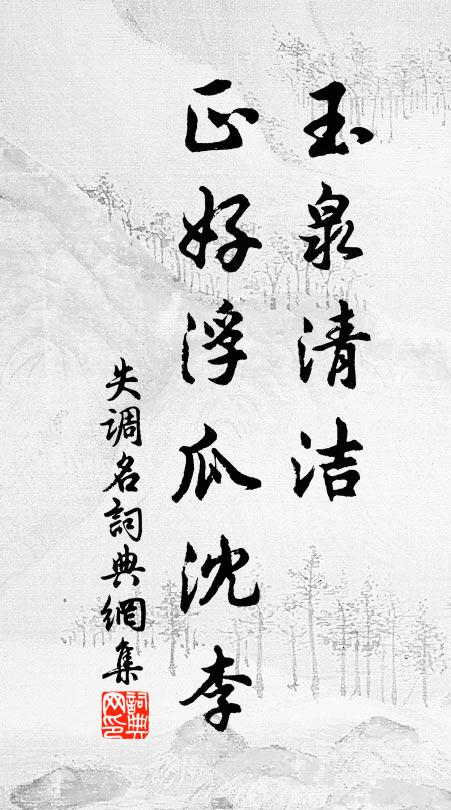 玉泉清洁
正好浮瓜沈李
失调名詞典網集
詞典
网印